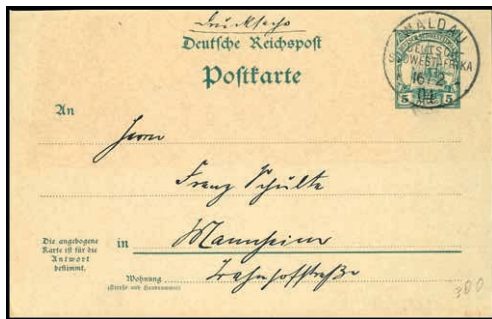 Drucksache
Deutsche Reichspost
Postkarte
WALDAU
DEUTSCH-
SÜDWESTAFRIKA
16/2
04
5 5
An
Herrn
Franz Schülte
Die angebogene
Karte ist für die
Antwort
bestimmt.
in Mannheim
Wohnung Bahnhofstraße
(Straße und Hausnummer)
300